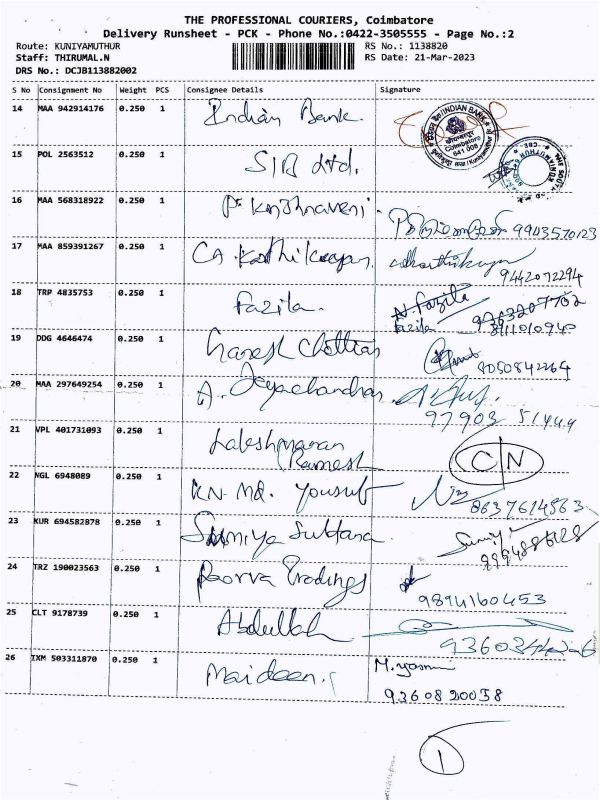 THE PROFESSIONAL COURIERS, Coimbatore
Delivery Runsheet - PCK - Phone No.:0422-3505555 - Page No.:2
Route: KUNIYAMUTHUR RS No.: 1138820
Staff: THIRUMAL.N RS Date: 21-Mar-2023
DRS No.: DCJB113882002
S No Consignment No Weight PCS Consignee Details Signature
14 MAA 942914176 0.250 1 Indian Bank.
INDIAN BANK
Coimbatore
641 008
15 POL 2563512 0.250 1 SIB Ltd.
16 MAA 568318922 0.250 1 P. 9943570123
17 MAA 859391267 0.250 1 CA. Karthikeyan.
9442072294
18 TRP 4835753 0.250 1 Fazila. N. Fazila
Fazila
19 DDG 4646474 0.250 1 Ganesh Chettiar
8050842264
20 MAA 297649254 0.250 1 A. Jeyachandran
97903 51444
21 VPL 401731093 0.250 1 Lakeshmanan
Ramesh
CN
22 NGL 6948089 0.250 1 KN. Md. Yousuf
8637614563
23 KUR 694582878 0.250 1 Sumiya Sultana
24 TRZ 190023563 0.250 1 Poorva Tradings
9894160453
25 CLT 9178739 0.250 1 Abdullah
26 IXM 503311870 0.250 1 Maideen. M. Yasmi
9360820058
1